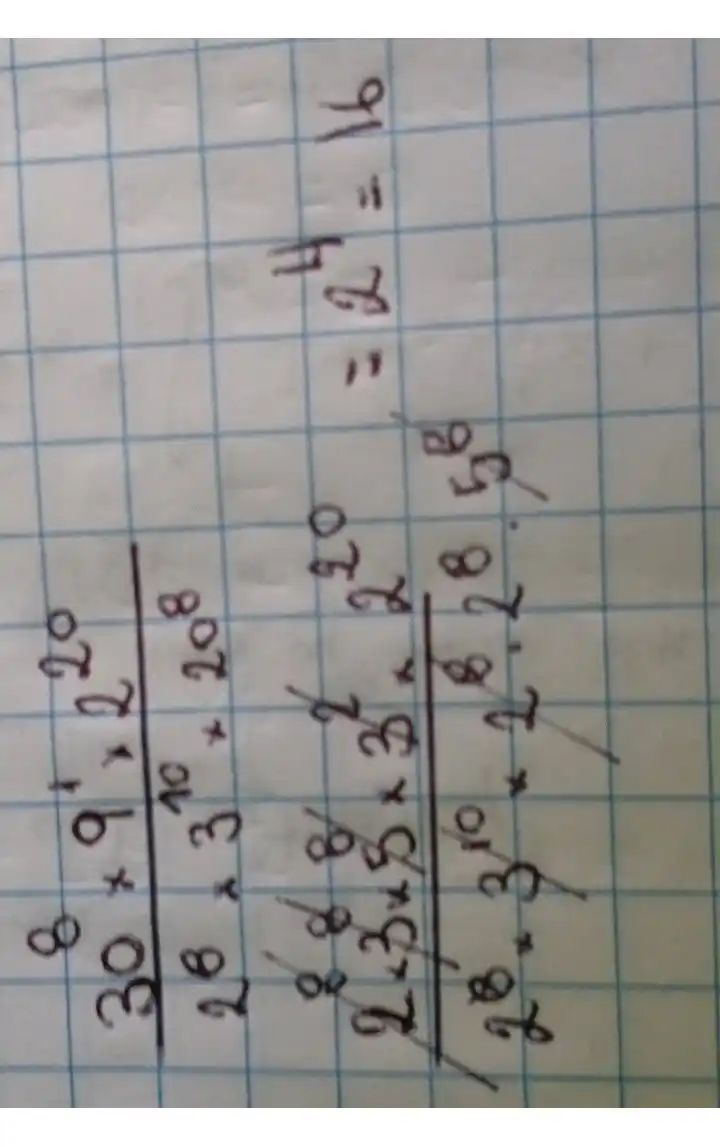 30⁸ × 9¹ × 2²⁰
2⁸ × 3¹⁰ × 20⁸
2⁸ × 3⁸ × 5⁸ × 3² × 2²⁰
2⁸ × 3¹⁰ × 2⁸ · 2⁸ · 5⁸
= 2⁴ = 16